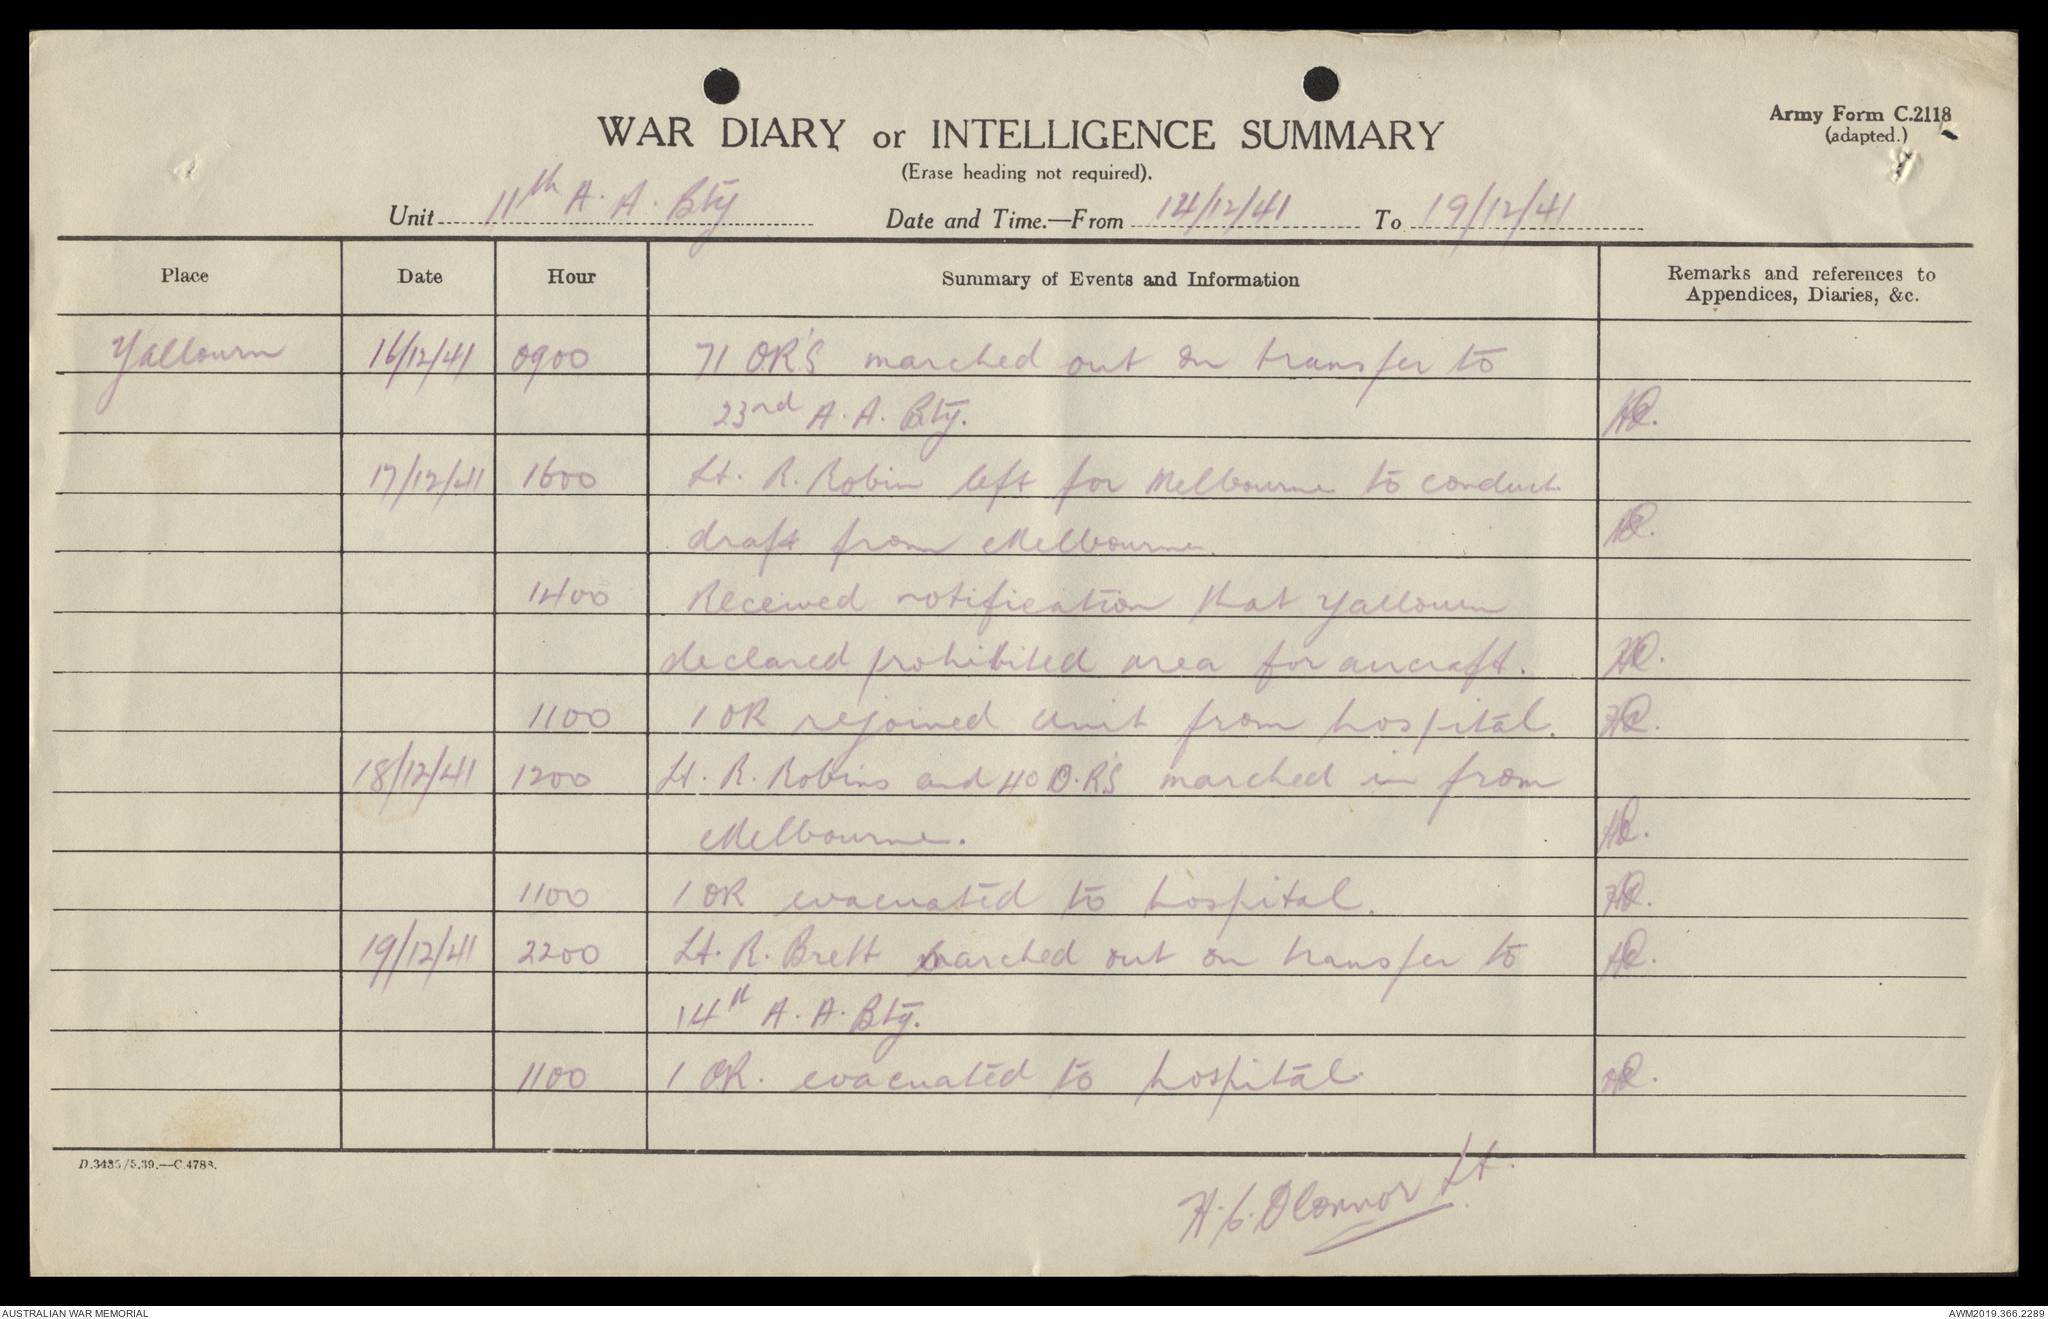 Army Form C.2118
(adapted.)
WAR DIARY or INTELLIGENCE SUMMARY
(Erase heading not required).
Unit 11th A. A. Bty Date and Time.—From 14/12/41 To 19/12/41
Place Date Hour Summary of Events and Information Remarks and references to
Appendices, Diaries, &c.
Yallourn 16/12/41 0900 71 OR'S marched out on transfer to
23rd A. A. Bty.
17/12/41 1600 Lt. R. Robin left for Melbourne to conduct
draft from Melbourne.
1400 Received notification that Yallourn
declared prohibited area for aircraft.
1100 1 OR rejoined unit from hospital.
18/12/41 1200 Lt. R. Robins and 40 O.R'S marched in from
Melbourne.
1100 1 OR evacuated to hospital.
19/12/41 2200 Lt. R. Brett marched out on transfer to
14th A. A. Bty.
1100 1 OR. evacuated to hospital.
D.3435/5.39.—C.4788.
H. C. O'Connor Lt.
AUSTRALIAN WAR MEMORIAL
AWM2019.366.2289